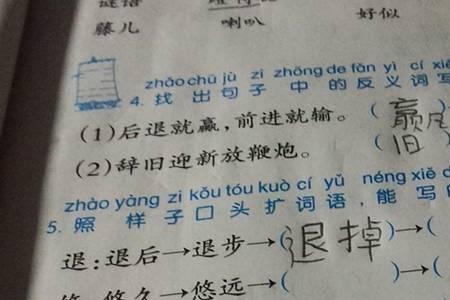 谜语
藤儿 喇叭 好似
zhǎo chū jù zi zhōng de fǎn yì cí xiě
4. 找 出 句 子 中 的 反 义 词 写
(1)后退就赢,前进就输。(赢
(2)辞旧迎新放鞭炮。(旧
zhào yàng zi kǒu tóu kuò cí yǔ néng xiě
5. 照 样 子 口 头 扩 词 语 , 能 写
退:退后→退步→(退掉)→(
悠久→悠远→( )→(